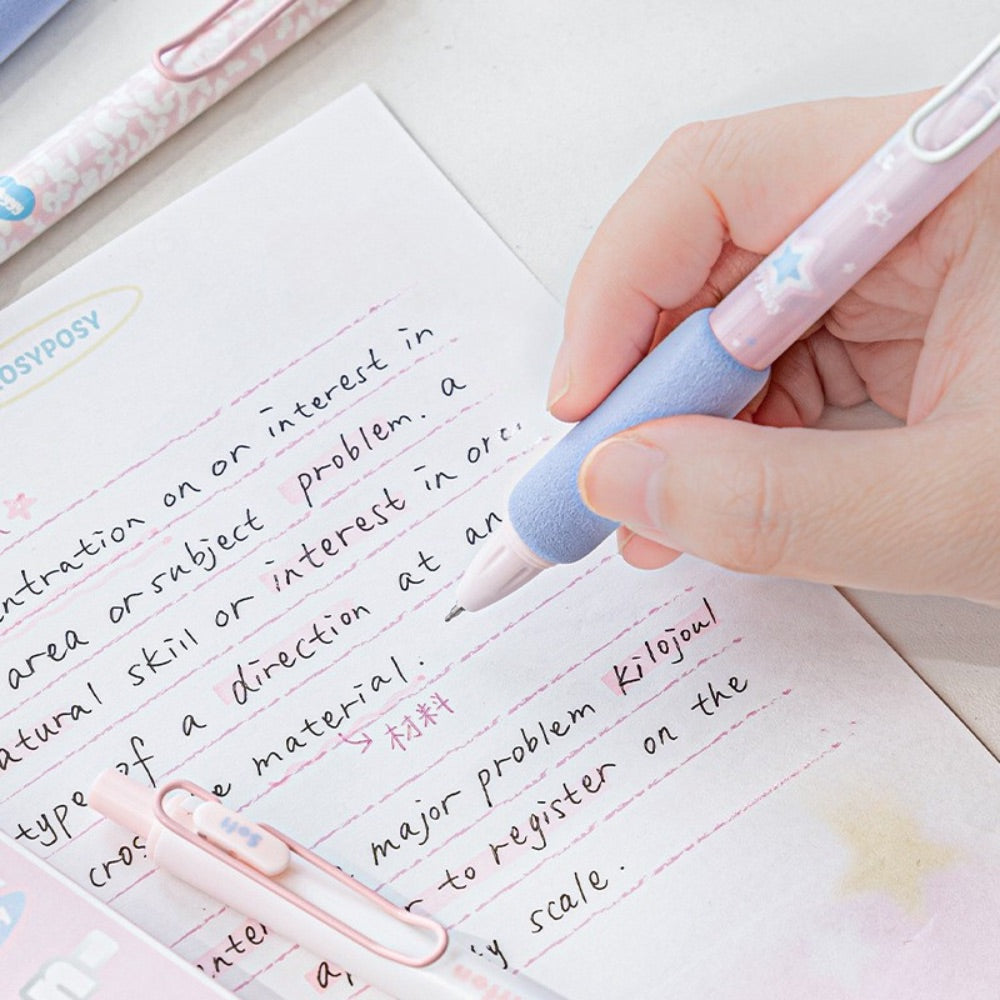 OSYPOSY
on or interest in
entration
area or subject problem. a
atural skill or interest in
type of a direction at an
cros material.
材料
major problem kilojoul
to register on the
scale.
Soft